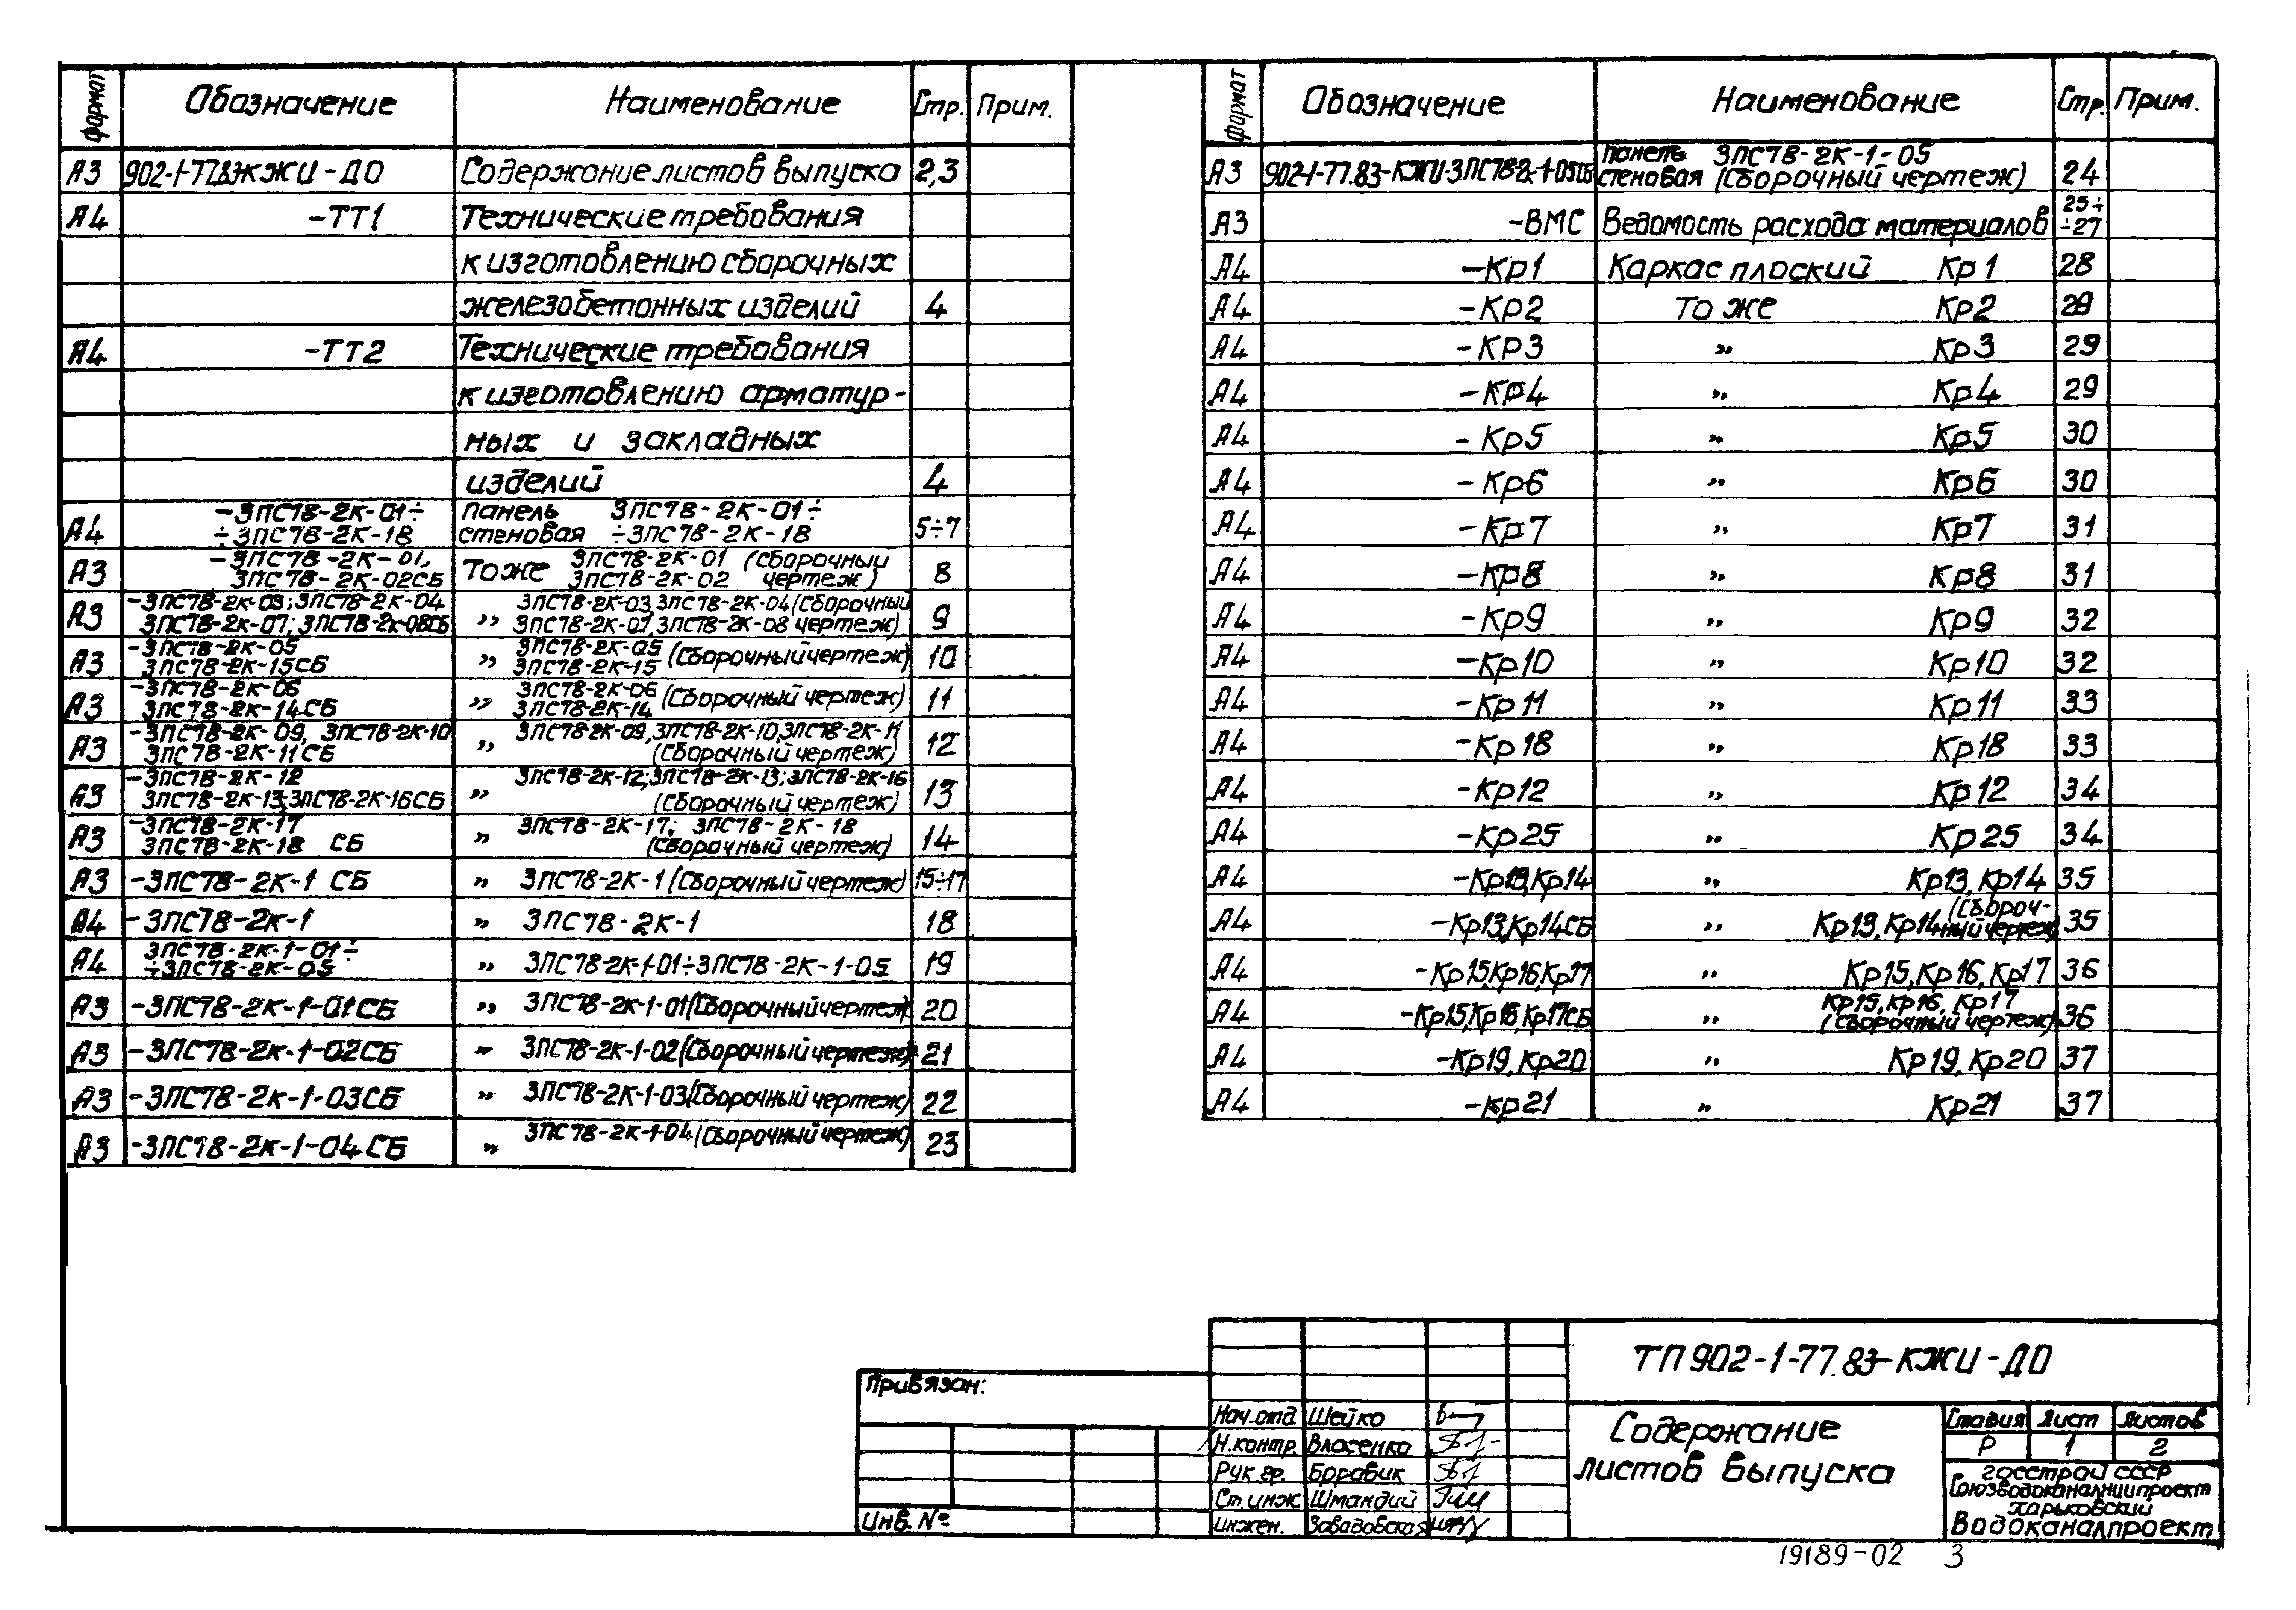 формат Обозначение Наименование Стр. Прим.
А3 902-1-77.83-КЖИ-ДО Содержание листов выпуска 2,3
А4 -ТТ1 Технические требования
к изготовлению сборочных
железобетонных изделий 4
А4 -ТТ2 Технические требования
к изготовлению арматур-
ных и закладных
изделий 4
-3ПС78-2К-01÷ панель 3ПС78-2К-01÷
А4 ÷3ПС78-2К-18 стеновая ÷3ПС78-2К-18 5÷7
-3ПС78-2К-01, 3ПС78-2К-01 (сборочный
А3 3ПС78-2К-02СБ То же 3ПС78-2К-02 чертеж) 8
-3ПС78-2К-03; 3ПС78-2К-04 3ПС78-2К-03, 3ПС78-2К-04 (Сборочный
А3 3ПС78-2К-07; 3ПС78-2К-08СБ „ 3ПС78-2К-07, 3ПС78-2К-08 чертеж) 9
-3ПС78-2К-05 3ПС78-2К-05
А3 3ПС78-2К-15СБ „ 3ПС78-2К-15 (Сборочный чертеж) 10
-3ПС78-2К-06 3ПС78-2К-06
А3 3ПС78-2К-14СБ „ 3ПС78-2К-14 (Сборочный чертеж) 11
-3ПС78-2К-09, 3ПС78-2К-10 3ПС78-2К-09, 3ПС78-2К-10, 3ПС78-2К-11
А3 3ПС78-2К-11СБ „ (Сборочный чертеж) 12
-3ПС78-2К-12 3ПС78-2К-12; 3ПС78-2К-13; 3ПС78-2К-16
А3 3ПС78-2К-13; 3ПС78-2К-16СБ „ (Сборочный чертеж) 13
-3ПС78-2К-17 3ПС78-2К-17; 3ПС78-2К-18
А3 3ПС78-2К-18 СБ „ (Сборочный чертеж) 14
А3 -3ПС78-2К-1 СБ „ 3ПС78-2К-1 (Сборочный чертеж) 15÷17
А4 -3ПС78-2К-1 „ 3ПС78-2К-1 18
3ПС78-2К-1-01÷
А4 ÷3ПС78-2К-05 „ 3ПС78-2К-1-01÷3ПС78-2К-1-05 19
А3 -3ПС78-2К-1-01СБ „ 3ПС78-2К-1-01 (Сборочный чертеж) 20
А3 -3ПС78-2К-1-02СБ „ 3ПС78-2К-1-02 (Сборочный чертеж) 21
А3 -3ПС78-2К-1-03СБ „ 3ПС78-2К-1-03 (Сборочный чертеж) 22
А3 -3ПС78-2К-1-04СБ „ 3ПС78-2К-1-04 (Сборочный чертеж) 23
формат Обозначение Наименование Стр. Прим.
панель 3ПС78-2К-1-05
А3 902-1-77.83-КЖИ-3ПС78-2К-1-05СБ стеновая (Сборочный чертеж) 24
25÷
А3 -ВМС Ведомость расхода материалов ÷27
А4 -Кр1 Каркас плоский Кр1 28
А4 -Кр2 то же Кр2 28
А4 -КР3 „ Кр3 29
А4 -Кр4 „ Кр4 29
А4 -Кр5 „ Кр5 30
А4 -Кр6 „ Кр6 30
А4 -Кр7 „ Кр7 31
А4 -Кр8 „ Кр8 31
А4 -Кр9 „ Кр9 32
А4 -Кр10 „ Кр10 32
А4 -Кр11 „ Кр11 33
А4 -Кр18 „ Кр18 33
А4 -Кр12 „ Кр12 34
А4 -Кр25 „ Кр25 34
А4 -Кр13, Кр14 „ Кр13, Кр14 35
(сбороч-
А4 -Кр13, Кр14СБ „ Кр13, Кр14 ный чертеж) 35
А4 -Кр15, Кр16, Кр17 „ Кр15, Кр16, Кр17 36
Кр15, Кр16, Кр17
А4 -Кр15, Кр16, Кр17СБ „ (сборочный чертеж) 36
А4 -Кр19, Кр20 „ Кр19, Кр20 37
А4 -Кр21 „ Кр21 37
Привязан:
Инв. №
Нач.отд Шейко
Н.контр. Власенко
Рук.гр. Боровик
Ст.инж Шмандий
Инжен. Завадовская
ТП 902-1-77.83-КЖИ-ДО
Содержание
листов выпуска
Стадия Лист Листов
Р 1 2
Госстрой СССР
Союзводоканалниипроект
Харьковский
Водоканалпроект
19189-02 3